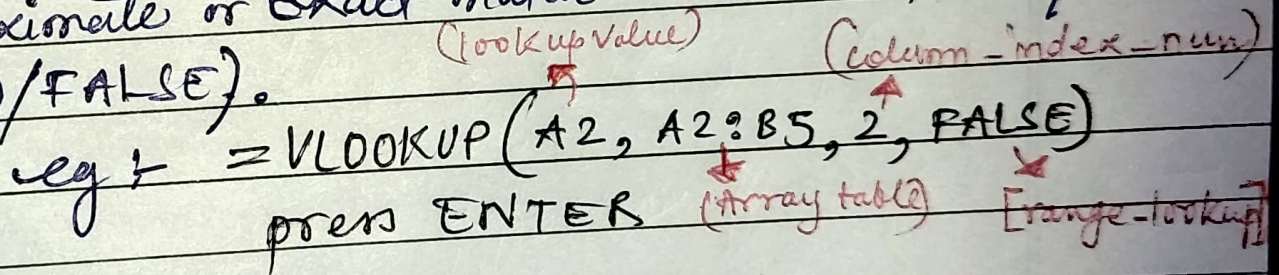 or exact
(lookup value) (column_index_num)
/FALSE).
eg :- =VLOOKUP(A2, A2:B5, 2, FALSE)
press ENTER (Array table) [range-lookup]